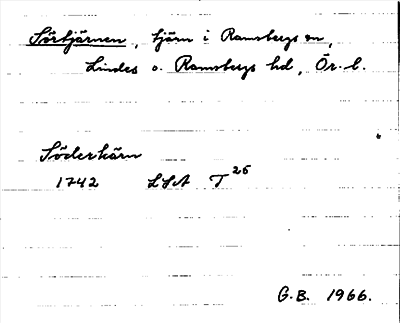 Sörtjärnen, tjärn i Ramsbergs sn,
Lindes o. Ramsbergs hd, Ör. l.
Södertärn
1742 LSA T 26
G.B. 1966.